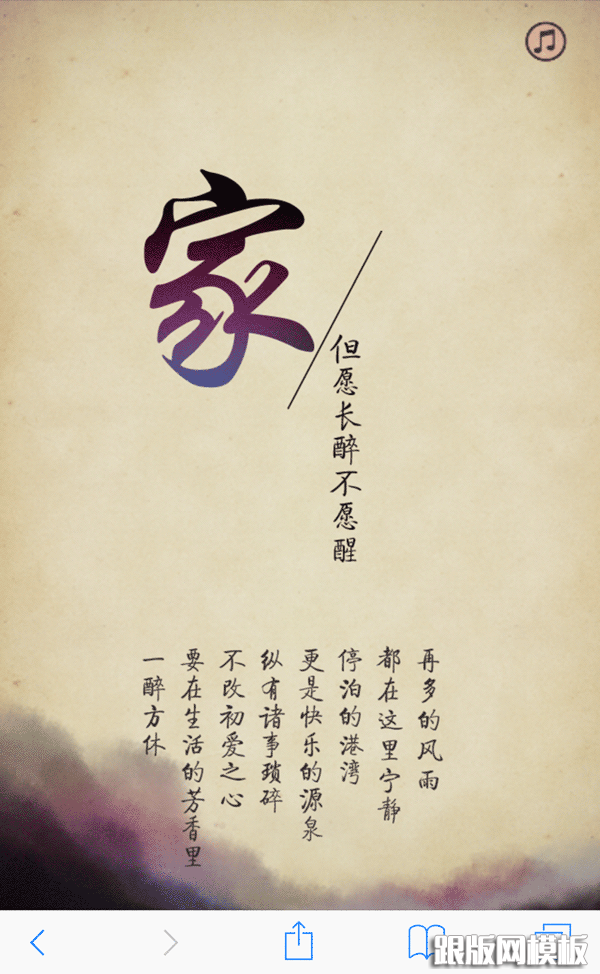 家
但愿长醉不愿醒
再多的风雨
都在这里宁静
停泊的港湾
更是快乐的源泉
纵有诸事琐碎
不改初爱之心
要在生活的芳香里
一醉方休
跟版网模板